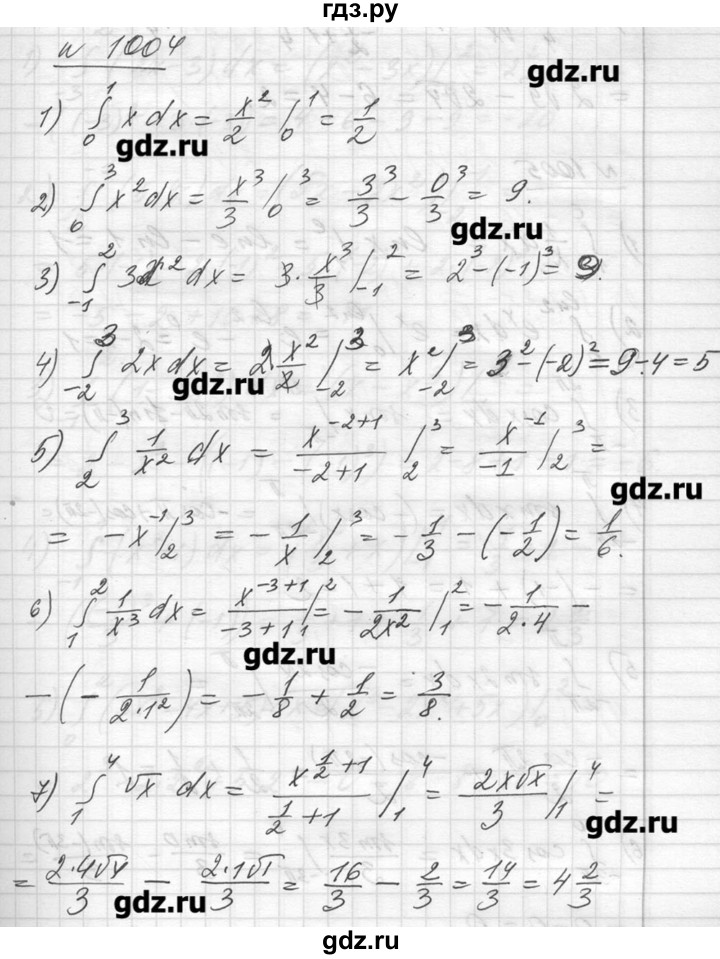 гдз.ру
№ 1004
gdz.ru
1) ∫₀¹ x dx = x²/2 |₀¹ = 1/2
gdz.ru
2) ∫₀³ x² dx = x³/3 |₀³ = 3³/3 − 0³/3 = 9.
gdz.ru
3) ∫₋₁² 3x² dx = 3·x³/3 |₋₁² = 2³ − (−1)³ = 9.
4) ∫₋₂³ 2x dx = 2x²/2 |₋₂³ = x² |₋₂³ = 3² − (−2)² = 9 − 4 = 5
gdz.ru
5) ∫₂³ 1/x² dx = x⁻²⁺¹/(−2+1) |₂³ = x⁻¹/(−1) |₂³ =
gdz.ru
= −x⁻¹ |₂³ = −1/x |₂³ = −1/3 − (−1/2) = 1/6.
6) ∫₁² 1/x³ dx = x⁻³⁺¹/(−3+1) |₁² = −1/(2x²) |₁² = −1/(2·4) −
gdz.ru
−(−1/(2·1²)) = −1/8 + 1/2 = 3/8.
7) ∫₁⁴ √x dx = x^(1/2+1)/(1/2+1) |₁⁴ = 2x√x/3 |₁⁴ =
gdz.ru
= 2·4√4/3 − 2·1√1/3 = 16/3 − 2/3 = 14/3 = 4 2/3
gdz.ru
gdz.ru